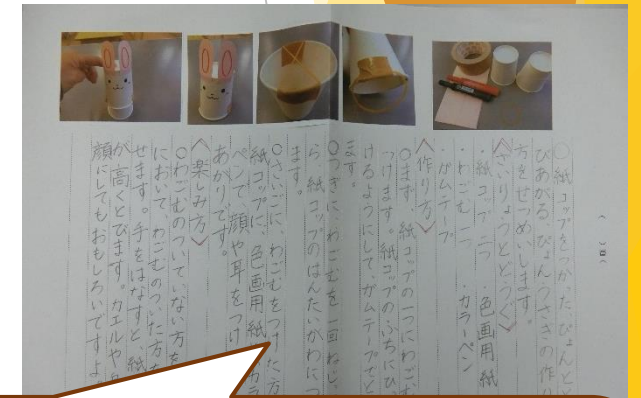 ○紙コップをつかった、ぴょんと
びあがる、ぴょんうさぎの作り
方をせつめいします。
〈ざいりょうとどうぐ〉
・紙コップ 二つ ・色画用紙
・わごむ 一つ ・カラーペン
・ガムテープ
〈作り方〉
○まず、紙コップの一つにわごむ
つけます。紙コップのふちにひ
けるようにして、ガムテープでと
ます。
○つぎに、わごむを一回ねじ
ら、紙コップのはんたいがわにつ
ます。
○さいごに、わごむをつけた方
紙コップに、色画用紙 カラ
ペンで、顔や耳をつけ
あがりです。
〈楽しみ方〉
○わごむのついていない方を
において、わごむのついた方を
せます。手をはなすと、紙
が高くとびます。カエルや
顔にしてもおもしろいですよ